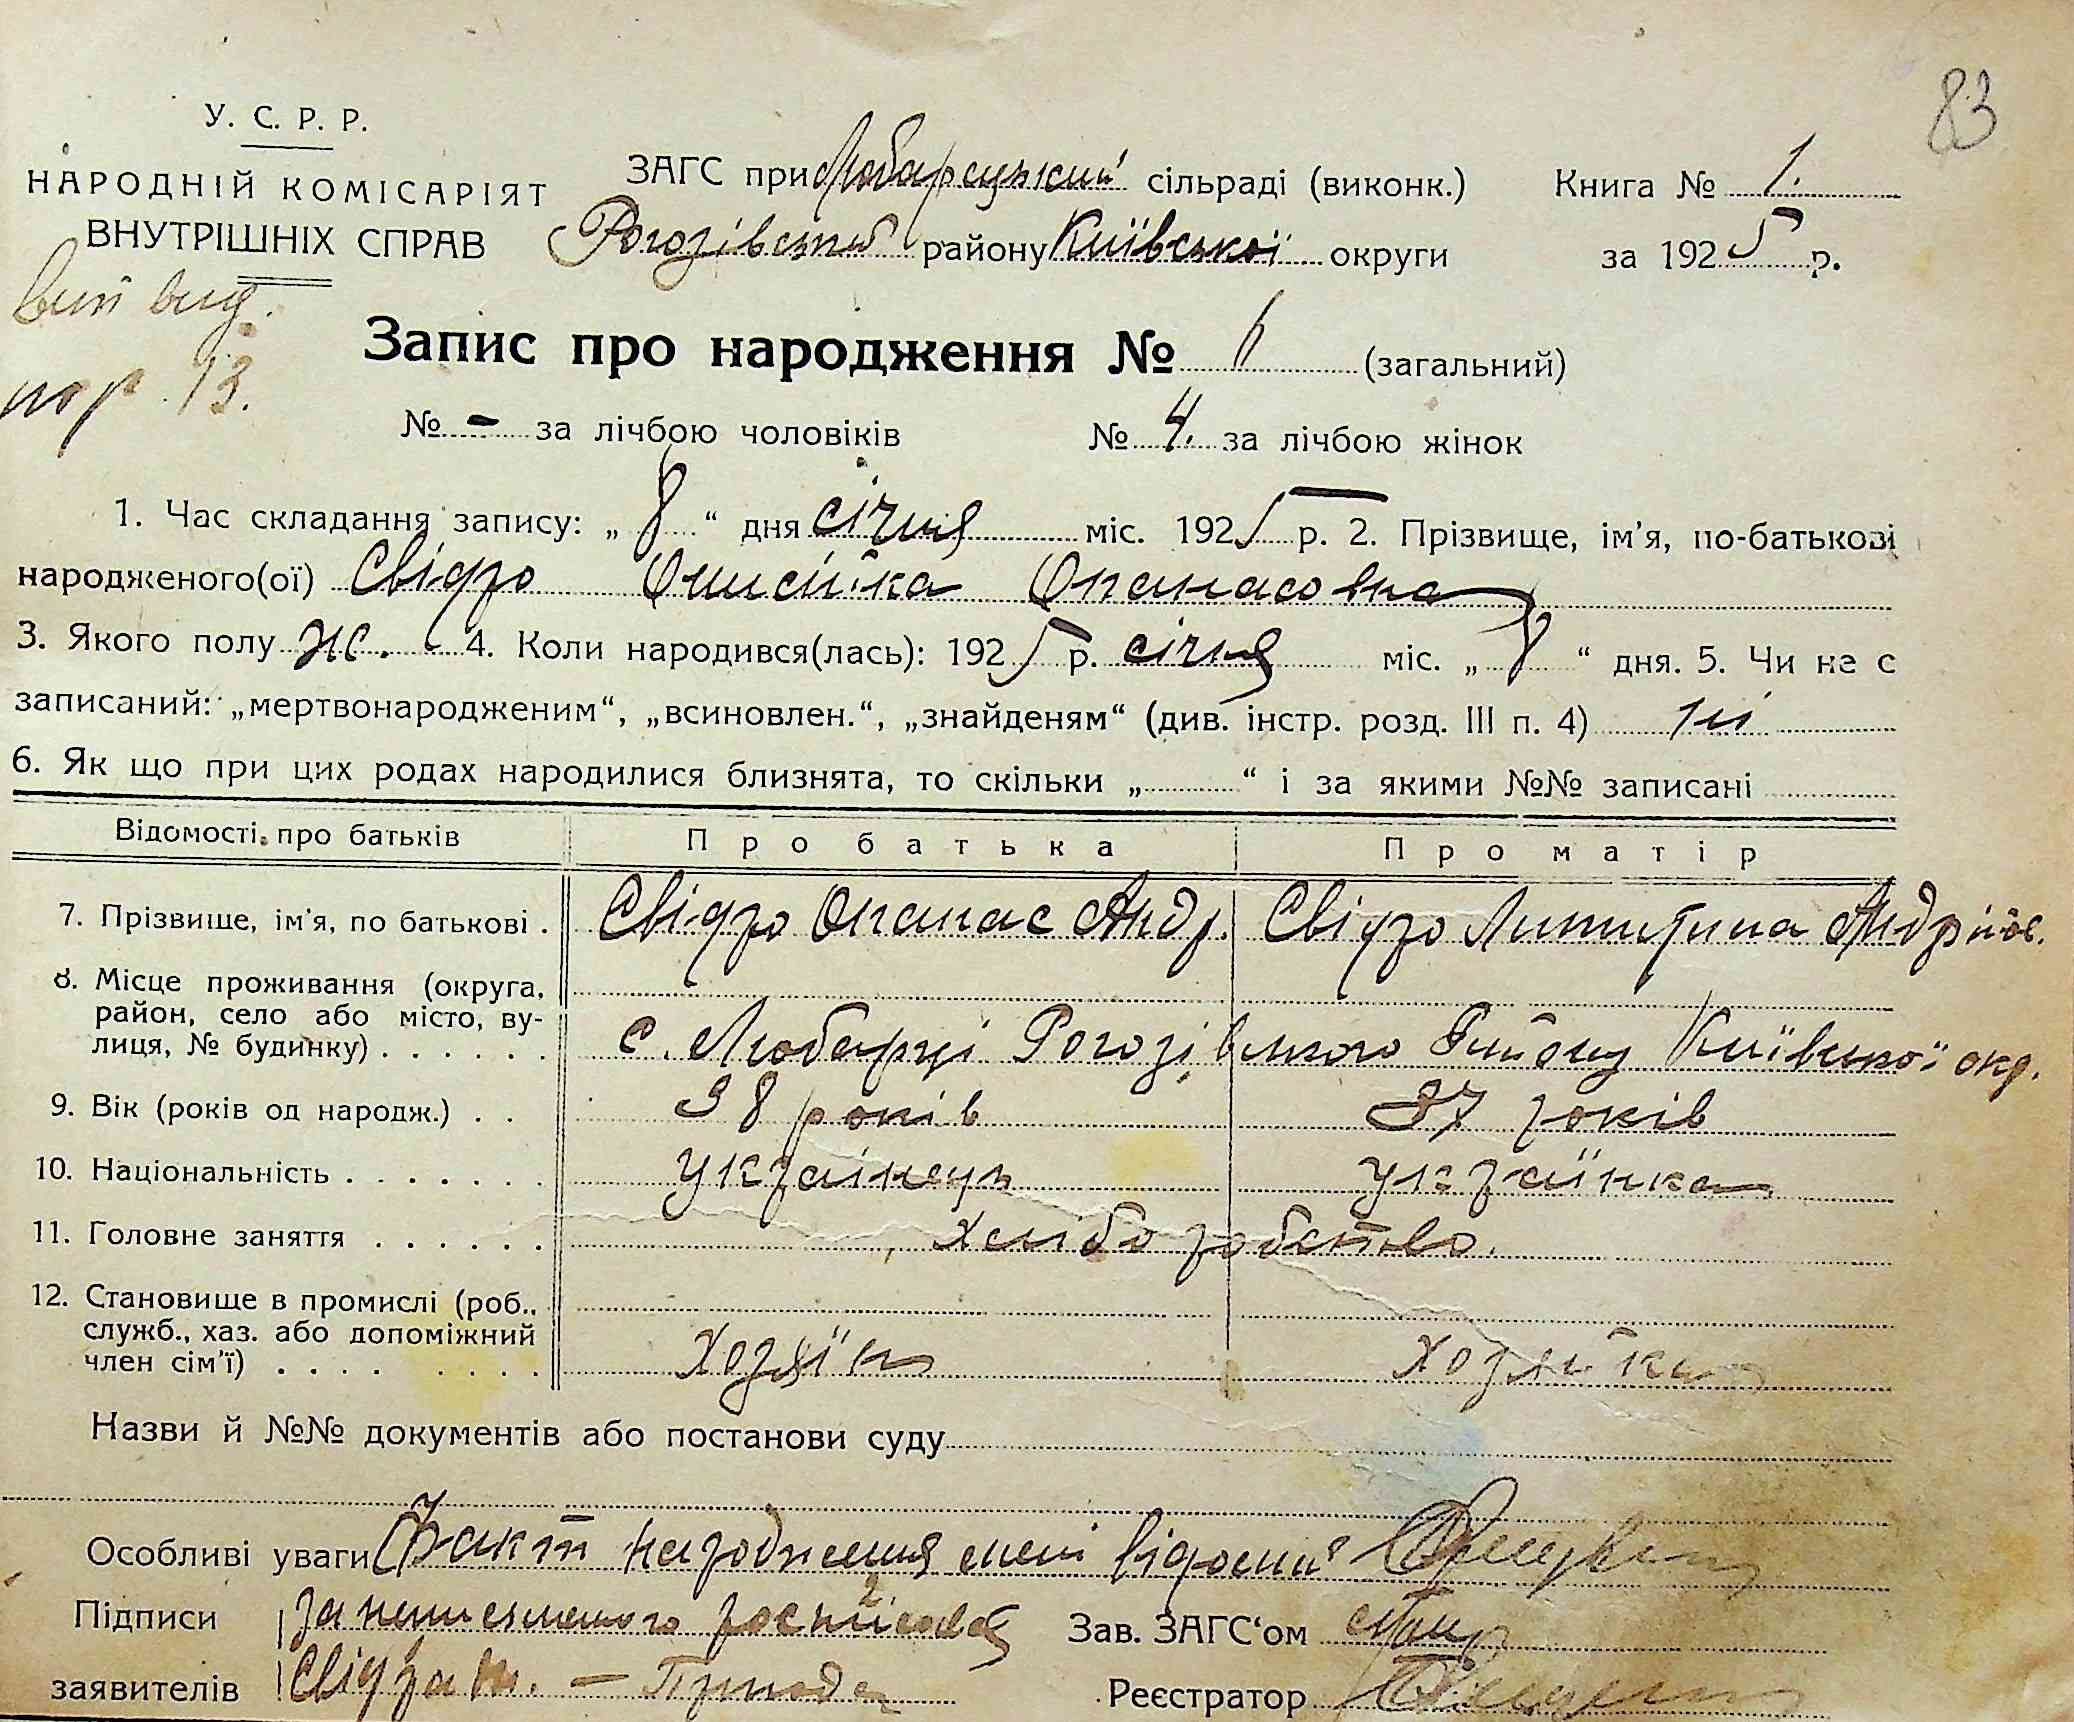 83
У. С. Р. Р.
НАРОДНІЙ КОМІСАРІЯТ
ВНУТРІШНІХ СПРАВ
ЗАГС при Любарецький сільраді (виконк.) Книга № 1.
Рогозівськ района Київської округи за 1925 р.
Запис про народження № 6 (загальний)
13.
№ - за лічбою чоловіків № 4. за лічбою жінок
1. Час складання запису: „ 8 “ дня січня міс. 1925 р. 2. Прізвище, ім'я, по-батькові
народженого(ої) Свідро Онисійка Опанасовна
3. Якого полу ж. 4. Коли народився(лась): 1925 р. січня міс. „ 8 “ дня. 5. Чи не є
записаний: „мертвонародженим“, „всиновлен.“, „знайденям“ (див. інстр. розд. III п. 4) ні
6. Як що при цих родах народилися близнята, то скільки „ “ і за якими №№ записані
Відомості про батьків Про батька Про матір
7. Прізвище, ім'я, по батькові . Свідро Опанас Андр. Свідро Андріїв.
8. Місце проживання (округа,
район, село або місто, ву-
лиця, № будинку) . . . . . . с. Любарці Рогозівського Району Київської окр.
9. Вік (років од народж.) . . 38 років 37 років
10. Національність . . . . . . . українець українка
11. Головне заняття . . . . . . хлібо робство.
12. Становище в промислі (роб.,
служб., хаз. або допоміжний
член сім'ї) . . . . . . . . хозяїн хозяйка
Назви й №№ документів або постанови суду
Особливі уваги Факт народження мені відомий
Підписи за неписьменого росписався Зав. ЗАГС‘ом
заявителів Свідра Реєстратор